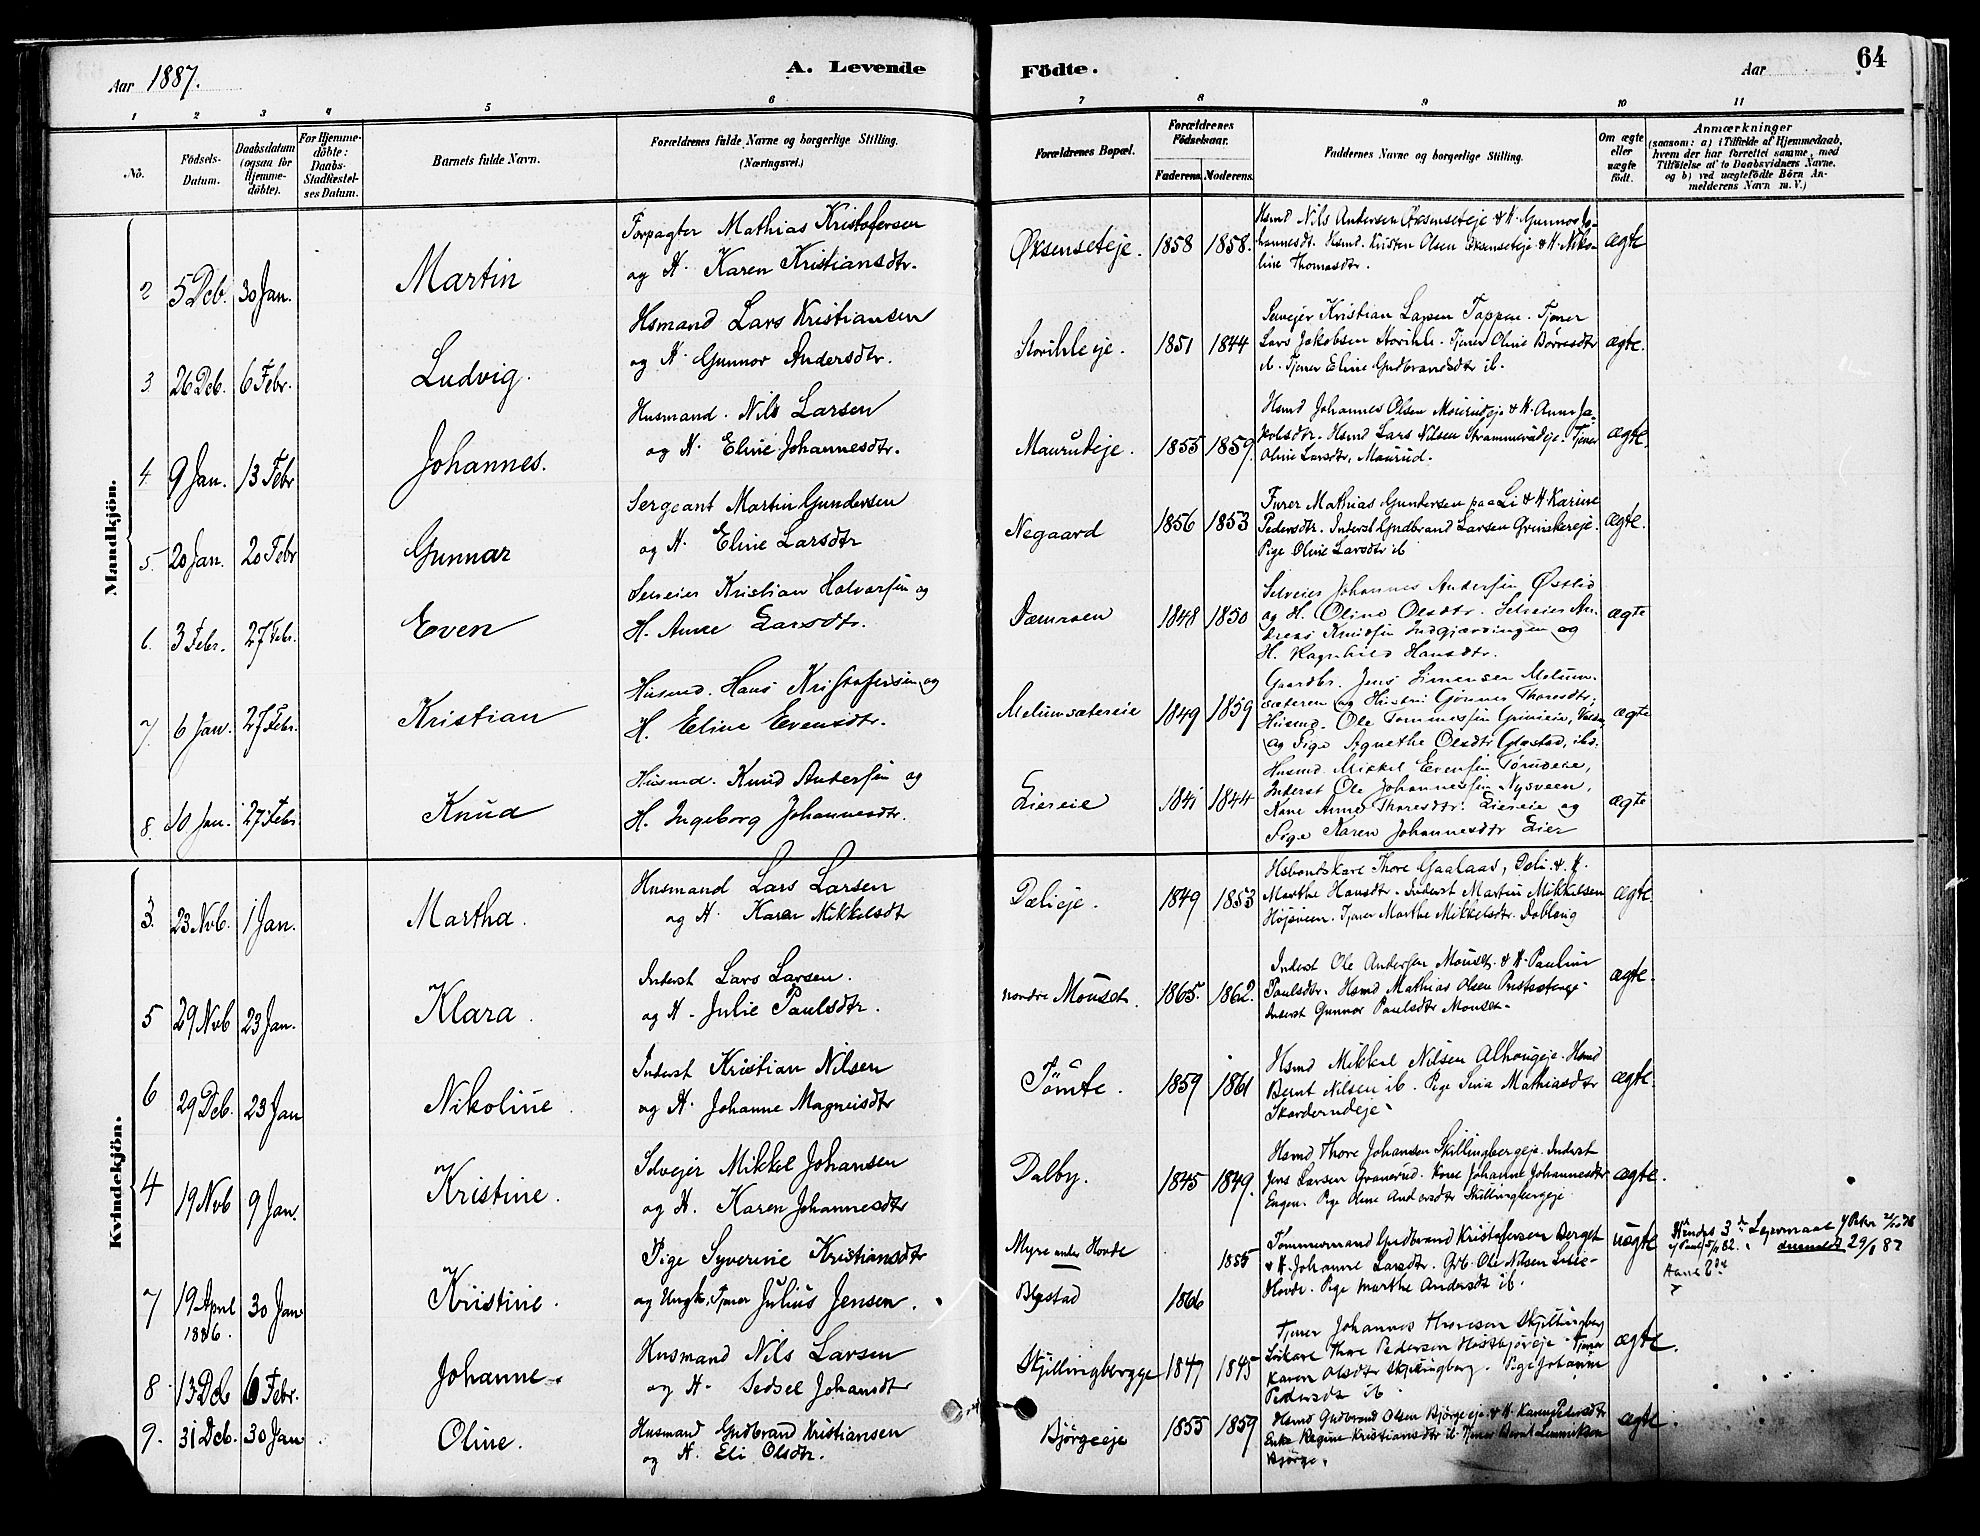 Aar 1887.
A. Levende Födte.
Aar
64
1 2 3 4 5 6 7 8 9 10 11
No.
Födsels-Datum.
Daabsdatum (ogsaa for Hjemme-döbte).
For Hjemme-döbte: Daabs-Stadfæstel-ses Datum.
Barnets fulde Navn.
Forældrenes fulde Navne og borgerlige Stilling. (Næringsvei.)
Forældrenes Bopæl.
Forældrenes Födselsaar.
Faderens. Moderens.
Faddernes Navne og borgerlige Stilling.
Om ægte eller uægte födt.
Anmærkninger
(saasom: a) i Tilfælde af Hjemmedaab, hvem der har forrettet samme, med Tilföielse af to Daabsvidners Navne, og b) ved uægtefödte Börn An-melderens Navn m. V.)
Mandkjön.
2 5 Dcb. 30 Jan. Martin
Forpagter Mathias Kristofersen
og H. Karen Kristiansdtr.
Øksenseteje. 1858 1858.
Hsmd Nils Andersen Øksenseteje & H. Gunnor Jo-
hannesdt. Hsmd. Kristen Olsen Øksenseteje & H. Niko-
line Thomasdtr.
ægte
3. 26 Dcb. 6 Febr. Ludvig.
Hsmand Lars Kristiansen
og H. Gunnor Andersdtr.
Storihleeje. 1851 1844
Selvejer Kristian Larsen Tappen. Tjener
Lars Jakobsen Storihle. Tjener Oline Børresdtr
ib. Tjener Eline Gudbrandsdtr ib.
ægte.
4. 9 Jan. 13 Febr Johannes.
Husmand. Nils Larsen
og H. Eline Johannesdtr.
Maurudeje. 1855 1859.
Hsmd Johannes Olsen Maurudeje & H. Anne Ja-
kobsdtr. Hsmd Lars Nilsen Strammerudeje. Tjener
Oline Larsdtr, Maurud.
ægte.
5. 20 Jan. 20 Febr Gunnar
Sergeant Martin Gundersen
og H. Eline Larsdtr
Negaard 1856 1853
Furer Mathias Gundersen paa Li & H. Karine
Pedersdtr. Inderst Gudbrand Larsen
Pige Oline Larsdtr ib
ægte.
6. 3 Febr. 27 Febr. Even
Selveier Kristian Halvorsen og
H. Anne Larsdtr.
1848 1850
Selveier Johannes Andersen Østlid
og H. Oline Olsdtr. Selveier An-
dreas Knudsen Indgjærdingen og
H. Ragnhild Hansdtr.
ægte
7. 6 Jan. 27 Febr. Kristian
Husmd. Hans Kristofersen og
H. Eline Evensdtr.
Melumsætereie 1849 1859
Gaardbr. Jens Simensen Melum-
sæteren og Hustru Gønner Thoresdtr,
Husmd. Ole Tommesen
og Pige Agnethe Olsdtr ibid.
ægte
8. 10 Jan. 27 Febr Knud
Husmd. Knud Andersen og
H. Ingeborg Johannesdtr.
Liereie 1841 1844
Husmd Mikkel Evensen Torudeie,
Inderst Ole Johannessen Nysveen,
Kone Anne Thoresdtr. Liereie og
Pige Karen Johannesdtr Lier
ægte
Kvindekjön.
3. 23 Nvb. 1 Jan. Martha.
Husmand Lars Larsen
og H. Karen Mikkelsdtr
Dælieje. 1849 1853
Husbondskare Thore Gaalaas, Dæli. & H.
Marthe Hansdtr. Inderst Martin Mikkelsen
Høisveen. Tjener Marthe Mikkelsdtr. Dobloug
ægte.
5 29 Nvb 23 Jan. Klara.
Inderst Lars Larsen.
og H. Julie Paulsdtr.
nordre Mouset. 1865. 1862.
Inderst Ole Andersen Mouset. & H. Pauline
Paulsdtr. Hsmd Mathias Olsen
Inderst Gunnor Paulsdtr Mouset.
ægte.
6 29 Dcb. 23 Jan Nikoline.
Inderst Kristian Nilsen
og H. Johanne Magneisdtr
Tømte. 1859 1861
Hsmd Mikkel Nilsen Alhougeje. Hsmd
Bernt Nilsen ib. Pige Sina Mathiasdtr
Skarderudeje.
ægte.
4 19 Nvb 9 Jan. Kristine.
Selvejer Mikkel Johansen
og H. Karen Johannesdtr
Dalby. 1845 1849.
Hsmd Thore Johansen Skillingbergeje. Inderst
Jens Larsen Granerud. Kone Johanne Johannesdtr
Engen. Pige Oline Andersdtr Skillingbergeje
ægte.
7 19 April 1886. 30 Jan Kristine.
Pige Syverine Kristiansdtr
og Ungk. Tjener Julius Jensen.
Myre under Hovde
Blystad 1866 1855
Tømmermand Gudbrand Kristofersen Berget
& H. Johanne Larsdtr. Grb. Ole Nilsen Lille-
Hovde. Pige Marthe Andersdt ib.
uægte
Hendes 3de Leiermaal
anmeldt 29/1 87
Hans 2det
8 13 Dcb 6 Febr. Johanne.
Husmand Nils Larsen
og H. Sedsel Johansdtr
Skjillingbergeje 1847 1845
Tjener Johannes Thoresen Skjillingberg
Thore Pedersen Tjener
Karen Olsdtr Skjillingberg. Pige Johanne
Pedersdt ib.
ægte.
9. 31 Dcb. 30 Jan Oline.
Husmand Gudbrand Kristiansen
og H. Eli Olsdtr.
Bjørgeeje 1855 1859
Hsmd Gudbrand Olsen Bjørgeeje. & H. Karen Pedersdtr
Enke Regine Kristiansdtr ib. Tjener Bernt
Bjørge.
ægte.